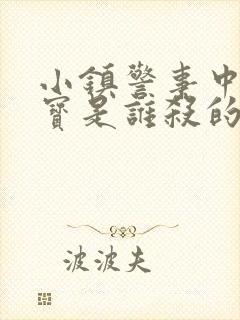 小鎮警事中
寶是誰殺的
波波夫